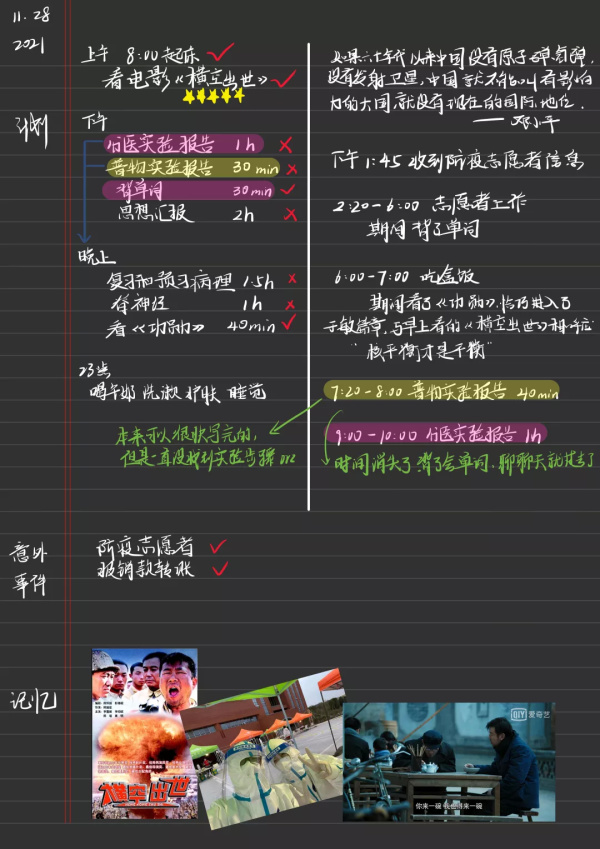 11.28
2021
上午 8:00起床
看电影《横空出世》
计划
下午
分医实验报告 1h
普物实验报告 30min
背单词 30min
思想汇报 2h
晚上
复习和预习病理 1.5h
脊神经 1h
看《功勋》 40min
23点
喝牛奶 洗漱 护肤 睡觉
本来可以很快写完的,
但是一直没找到实验步骤 orz
如果六十年代以来中国没有原子弹、氢弹,
没有发射卫星,中国就不能叫有影响
力的大国,就没有现在的国际地位.
——邓小平
下午1:45 收到防疫志愿者信息
2:20-6:00 志愿者工作
期间背了单词
6:00-7:00 吃盒饭
期间看了《功勋》,恰巧进入了
于敏篇章,与早上看的《横空出世》相呼应
“核平衡才是平衡”
7:20-8:00 普物实验报告 40min
9:00-10:00 分医实验报告 1h
时间消失了 背了会单词、聊聊天就过去了
意外
事件
防疫志愿者
报销款转账
记忆
横空出世
爱奇艺
你来一碗 我也得来一碗